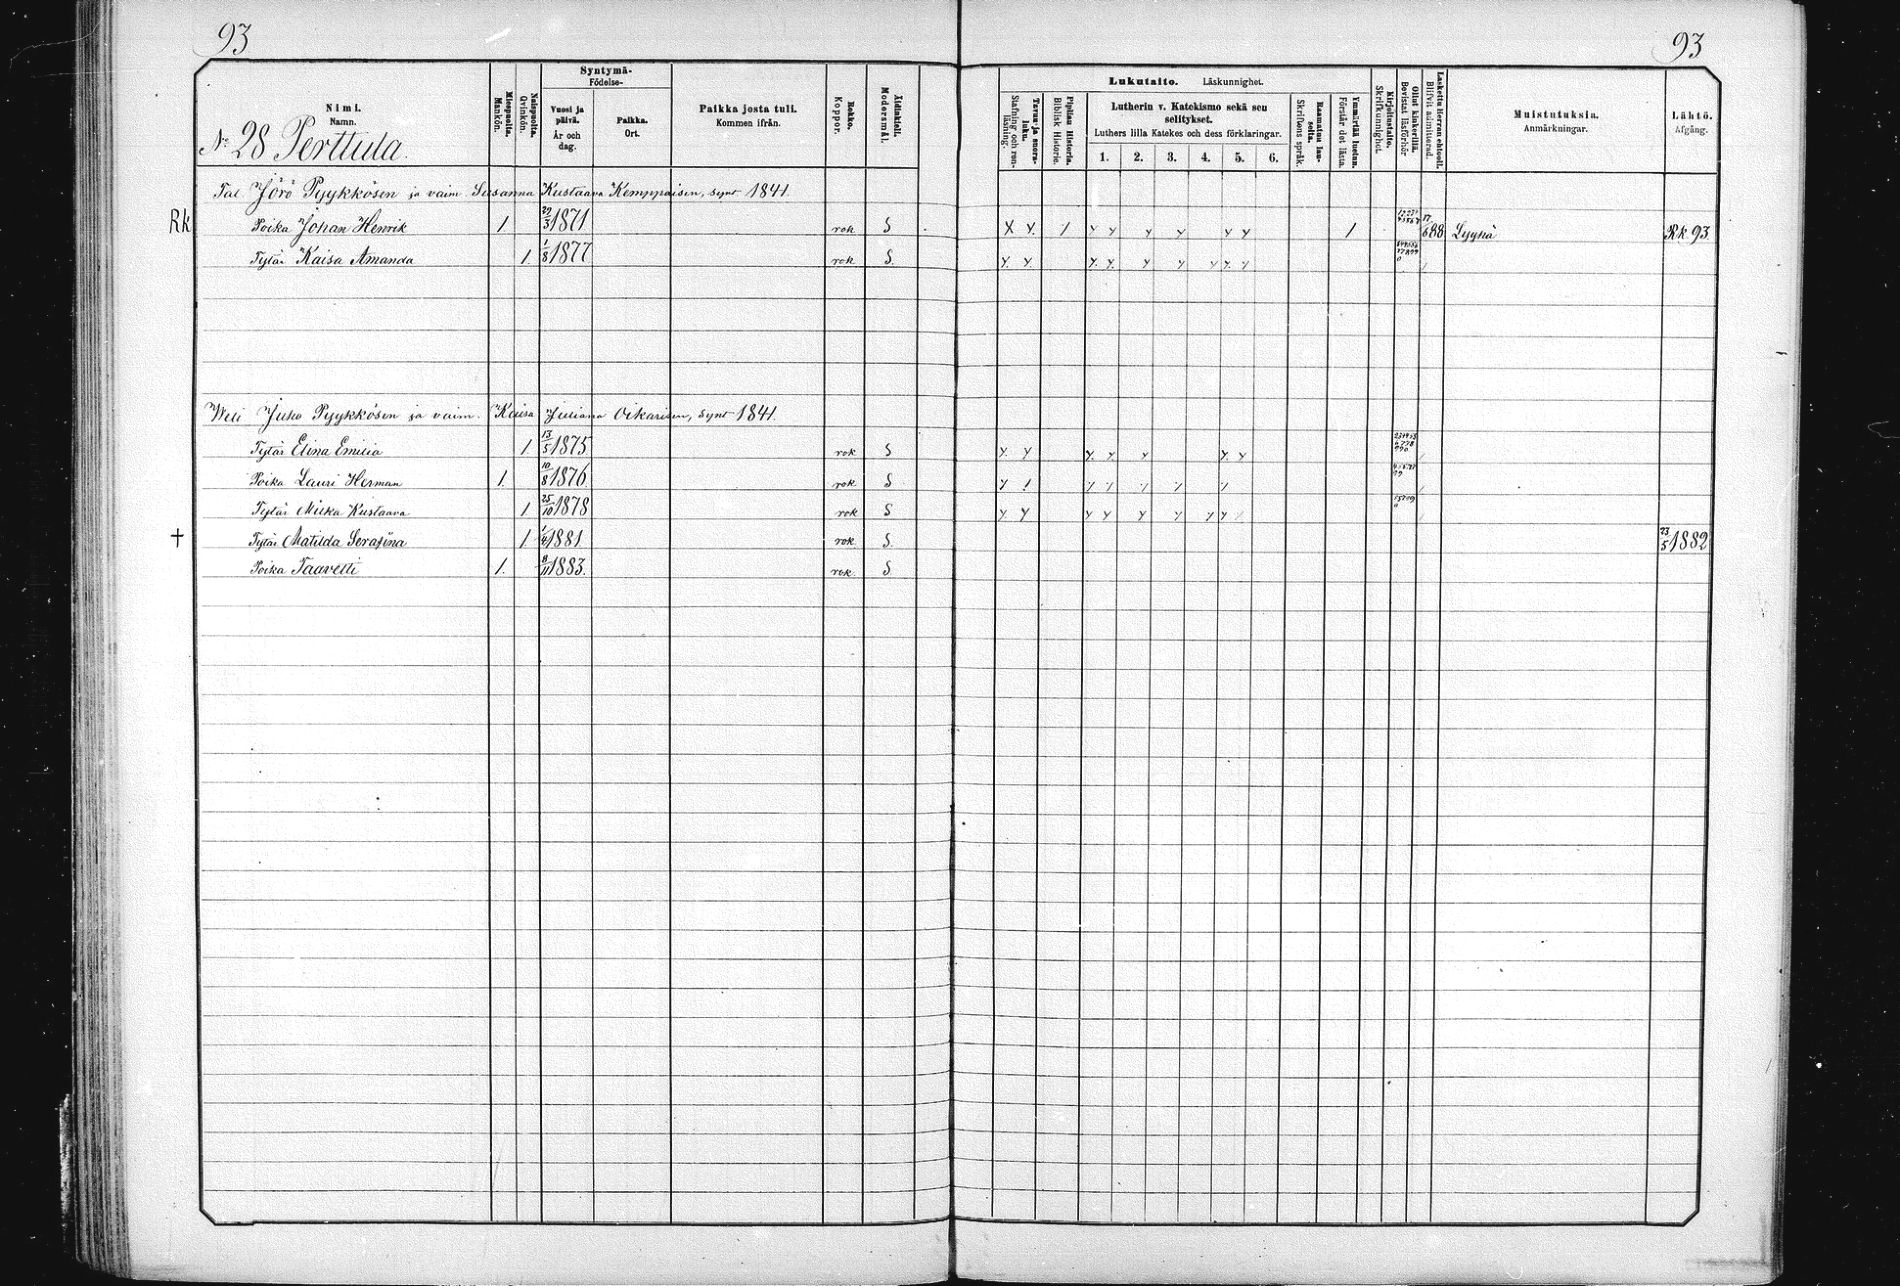 93
93
Nimi.
Namn.
Miespuolta.
Mankön.
Naispuolta.
Qvinkön.
Syntymä-
Födelse-
Vuosi ja päivä.
År och dag.
Paikka.
Ort.
Paikka josta tuli.
Kommen ifrån.
Rokko.
Koppor.
Äidinkieli.
Modersmål.
Lukutaito. Läskunnighet.
Tavuu- ja suora-luku.
Stafning och ren-läsning.
Piplian Historia.
Biblisk Historie.
Lutherin v. Katekismo sekä sen selitykset.
Luthers lilla Katekes och dess förklaringar.
1. 2. 3. 4. 5. 6.
Raamatun lau-seita.
Skriftens språk.
Ymmärtää luetun.
Förstår det lästa.
Kirjoitustaito.
Skrifkunnighet.
Ollut kinkerillä.
Bevistat läsförhör
Laskettu Herran ehtool.
Blifvit admitterad.
Muistutuksia.
Anmärkningar.
Lähtö.
Afgång.
No 28 Perttula.
Tal Jörö Pyykkösen ja vaim. Susanna Kustaava Kemppaisen, synt 1841.
Rk Poika Johan Henrik 1 29/3 1871 rok S Y Y. 1 Y Y Y Y Y Y 1 17/6 88 Lyyhä Rk 93
Tytär Kaisa Amanda 1. 1/8 1877 rok S. Y. Y. Y. Y. Y Y Y Y. Y
Weli Juho Pyykkösen ja vaim. Kaisa Juliana Oikarisen, synt 1841.
Tytär Elina Emilia 1. 13/5 1875 rok S Y. Y Y. Y. Y Y. Y
Poika Lauri Herman 1. 10/8 1876 rok. S Y 1 Y Y Y Y Y
Tytär Miika Kustaava 1 25/10 1878 rok S Y Y Y Y Y Y Y Y
† Tytär Matilda Serafina 1. 1/4 1881. rok. S. 23/5 1882
Poika Taavetti 1. 8/11 1883. rok. S